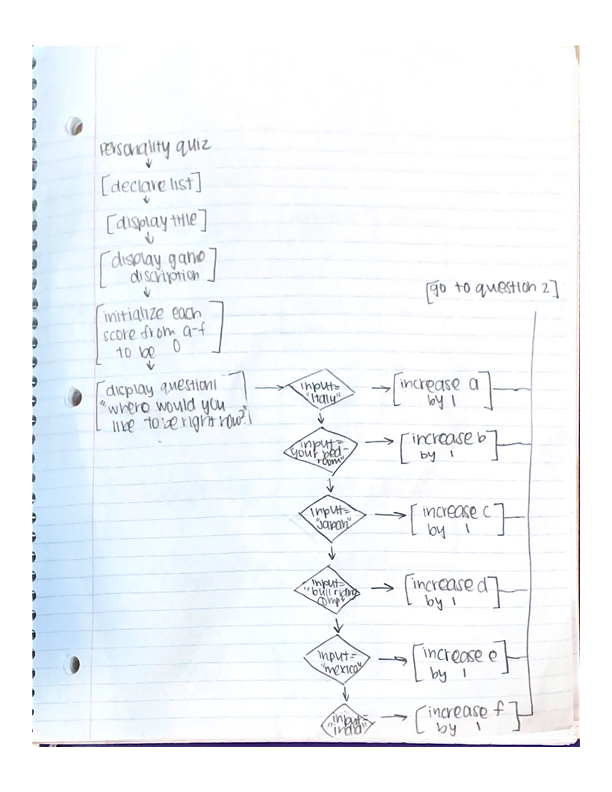 personality quiz
[declare list]
[display title]
[display game
discription]
[initialize each
score from a-f
to be 0]
[display question1
"where would you
like to be right now?"]
[go to question 2]
input=
"Italy"
[increase a
by 1]
input=
your bed-
room"
[increase b
by 1]
input=
"Japan"
[increase c
by 1]
input=
"bull riding
[increase d
by 1]
input=
"mexico"
[increase e
by 1]
input=
"india"
[increase f
by 1]